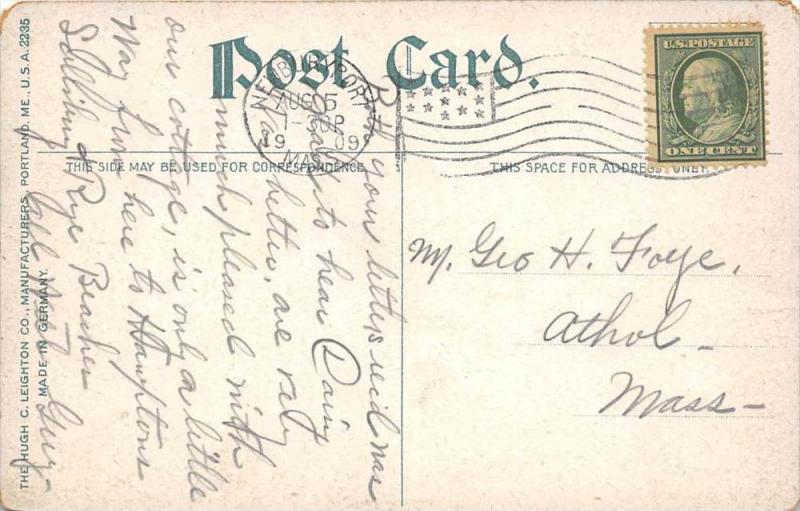 Post Card.
NEWBURYPORT
AUG 5
1-30P
19 09
MASS
U.S. POSTAGE
ONE CENT
THIS SIDE MAY BE USED FOR CORRESPONDENCE
THIS SPACE FOR ADDRESS ONLY.
THE HUGH C. LEIGHTON CO., MANUFACTURERS, PORTLAND, ME., U.S.A. 2235
MADE IN GERMANY.
Both your letters rec'd was
sorry to hear Dairy
was better, are very
much pleased with
our cottage, is only a little
way from here to Hamptons
Salisbury & Rye Beaches
Geo H. Foye,
Athol
Mass